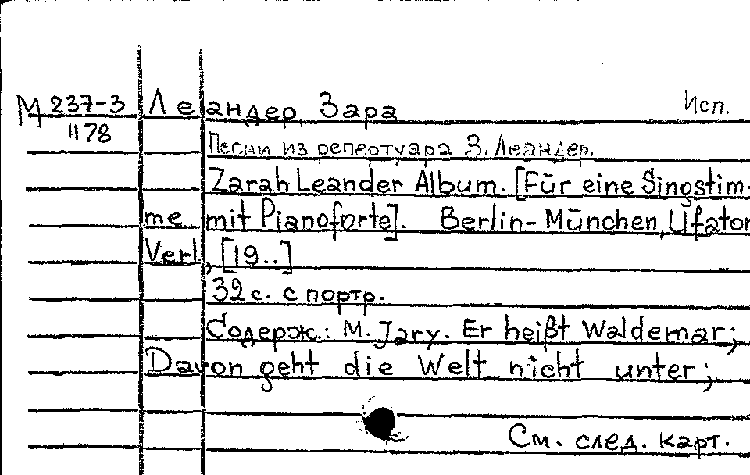 М 237-3 Леандер Зара Исп.
1178
Песни из репертуара З. Леандер.
Zarah Leander Album. [Für eine Singstim-
me mit Pianoforte]. Berlin-München, Ufaton
Verl., [19..]
32 с. с портр.
Содерж.: M. Jary. Er heißt Waldemar;
Davon geht die Welt nicht unter;
См. след. карт.